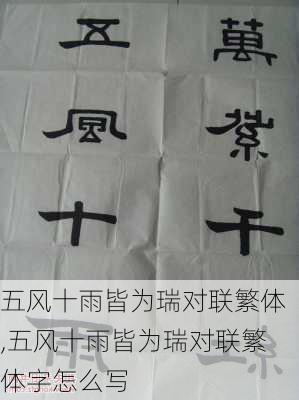 萬紫千
五風十雨
五风十雨皆为瑞对联繁体
,五风十雨皆为瑞对联繁
体字怎么写